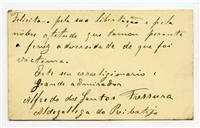 Felicita-o pela sua libertação e pela
nobre atitude que tomou perante
a feroz adversidade de que foi
victima.
Este seu correligionario e
grande admirador
Alfredo dos Santos
Aldegallega do Ribatejo